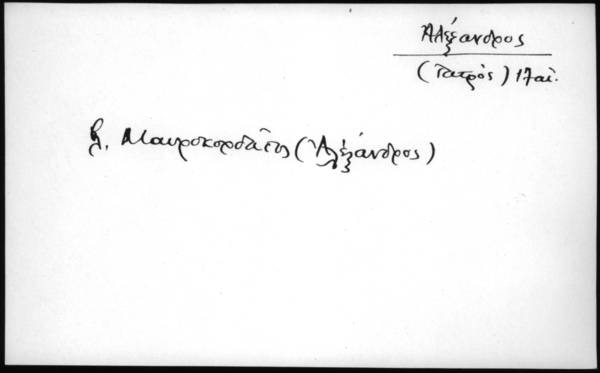 Ἀλέξανδρος
(ἰατρός) 17 αἰ.
βλ. Μαυροκορδᾶτος (Ἀλέξανδρος)